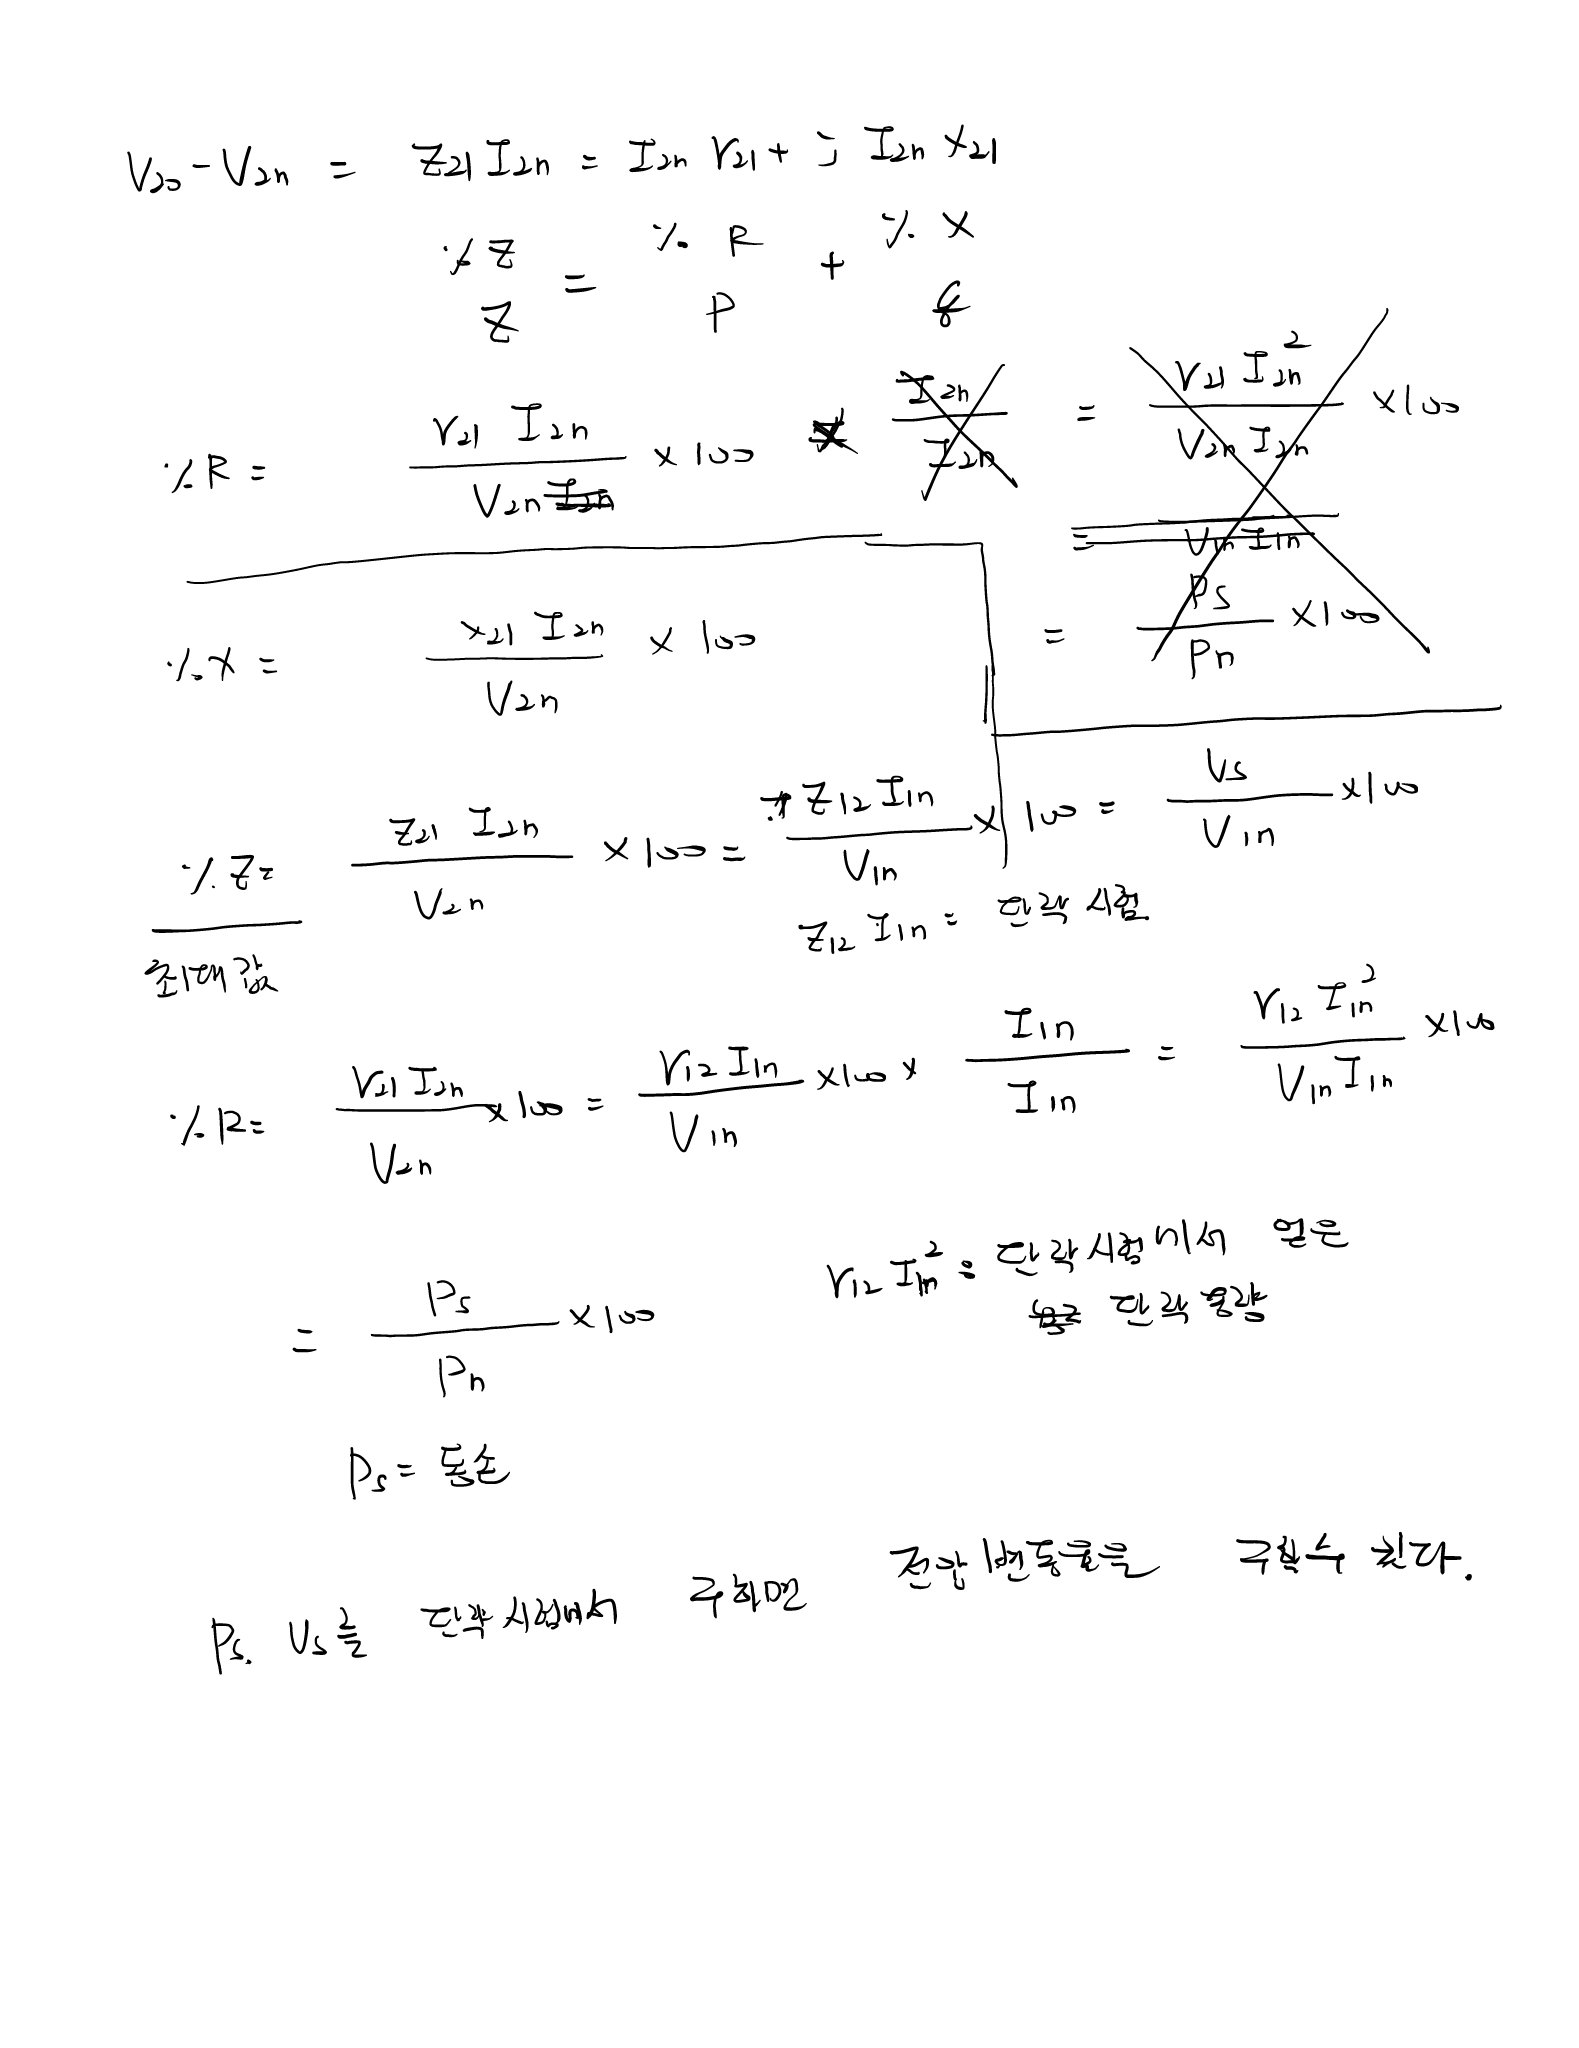 V20 - V2n = Z21 I2n = I2n r21 + j I2n x21
%Z = %R + %X
Z P q
%R = r21 I2n / V2n I2n × 100 × I2n / I2n = r21 I2n² / V2n I2n × 100
= V1n I1n
= Ps / Pn × 100
%X = x21 I2n / V2n × 100
%Z = Z21 I2n / V2n × 100 = Z12 I1n / V1n × 100 = Vs / V1n × 100
Z12 I1n = 단락 시험
최대값
%R = r21 I2n / V2n × 100 = r12 I1n / V1n × 100 × I1n / I1n = r12 I1n² / V1n I1n × 100
r12 I1n² = 단락시험에서 얻은
단락용량
= Ps / Pn × 100
Ps = 동손
Ps. Vs를 단락시험에서 구하면 전압변동율을 구할수 있다.